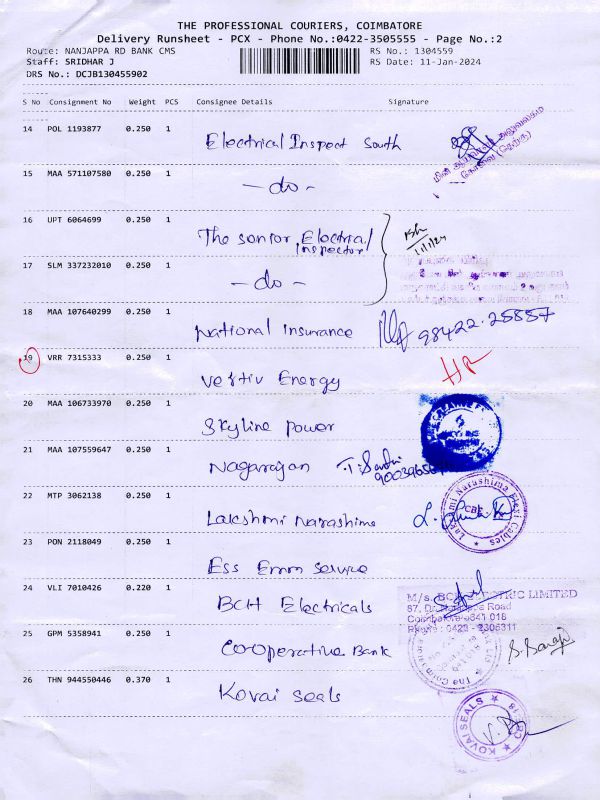 THE PROFESSIONAL COURIERS, COIMBATORE
Delivery Runsheet - PCX - Phone No.:0422-3505555 - Page No.:2
Route: NANJAPPA RD BANK CMS RS No.: 1304559
Staff: SRIDHAR J RS Date: 11-Jan-2024
DRS No.: DCJB130455902
S No Consignment No Weight PCS Consignee Details Signature
14 POL 1193877 0.250 1 Electrical Inspect South
15 MAA 571107580 0.250 1 - do -
16 UPT 6064699 0.250 1 The senior Electrical Inspector
17 SLM 337232010 0.250 1 - do -
18 MAA 107640299 0.250 1 National Insurance 98422.25557
19 VRR 7315333 0.250 1 Vertiv Energy
20 MAA 106733970 0.250 1 Skyline Power
21 MAA 107559647 0.250 1 Nagarajan
22 MTP 3062138 0.250 1 Lakshmi Narashima
23 PON 2118049 0.250 1 Ess Emm Service
24 VLI 7010426 0.220 1 BCH Electricals
M/s. BCH ELECTRIC LIMITED
25 GPM 5358941 0.250 1 Co-operative Bank
26 THN 944550446 0.370 1 Kovai Seals
KOVAI SEALS